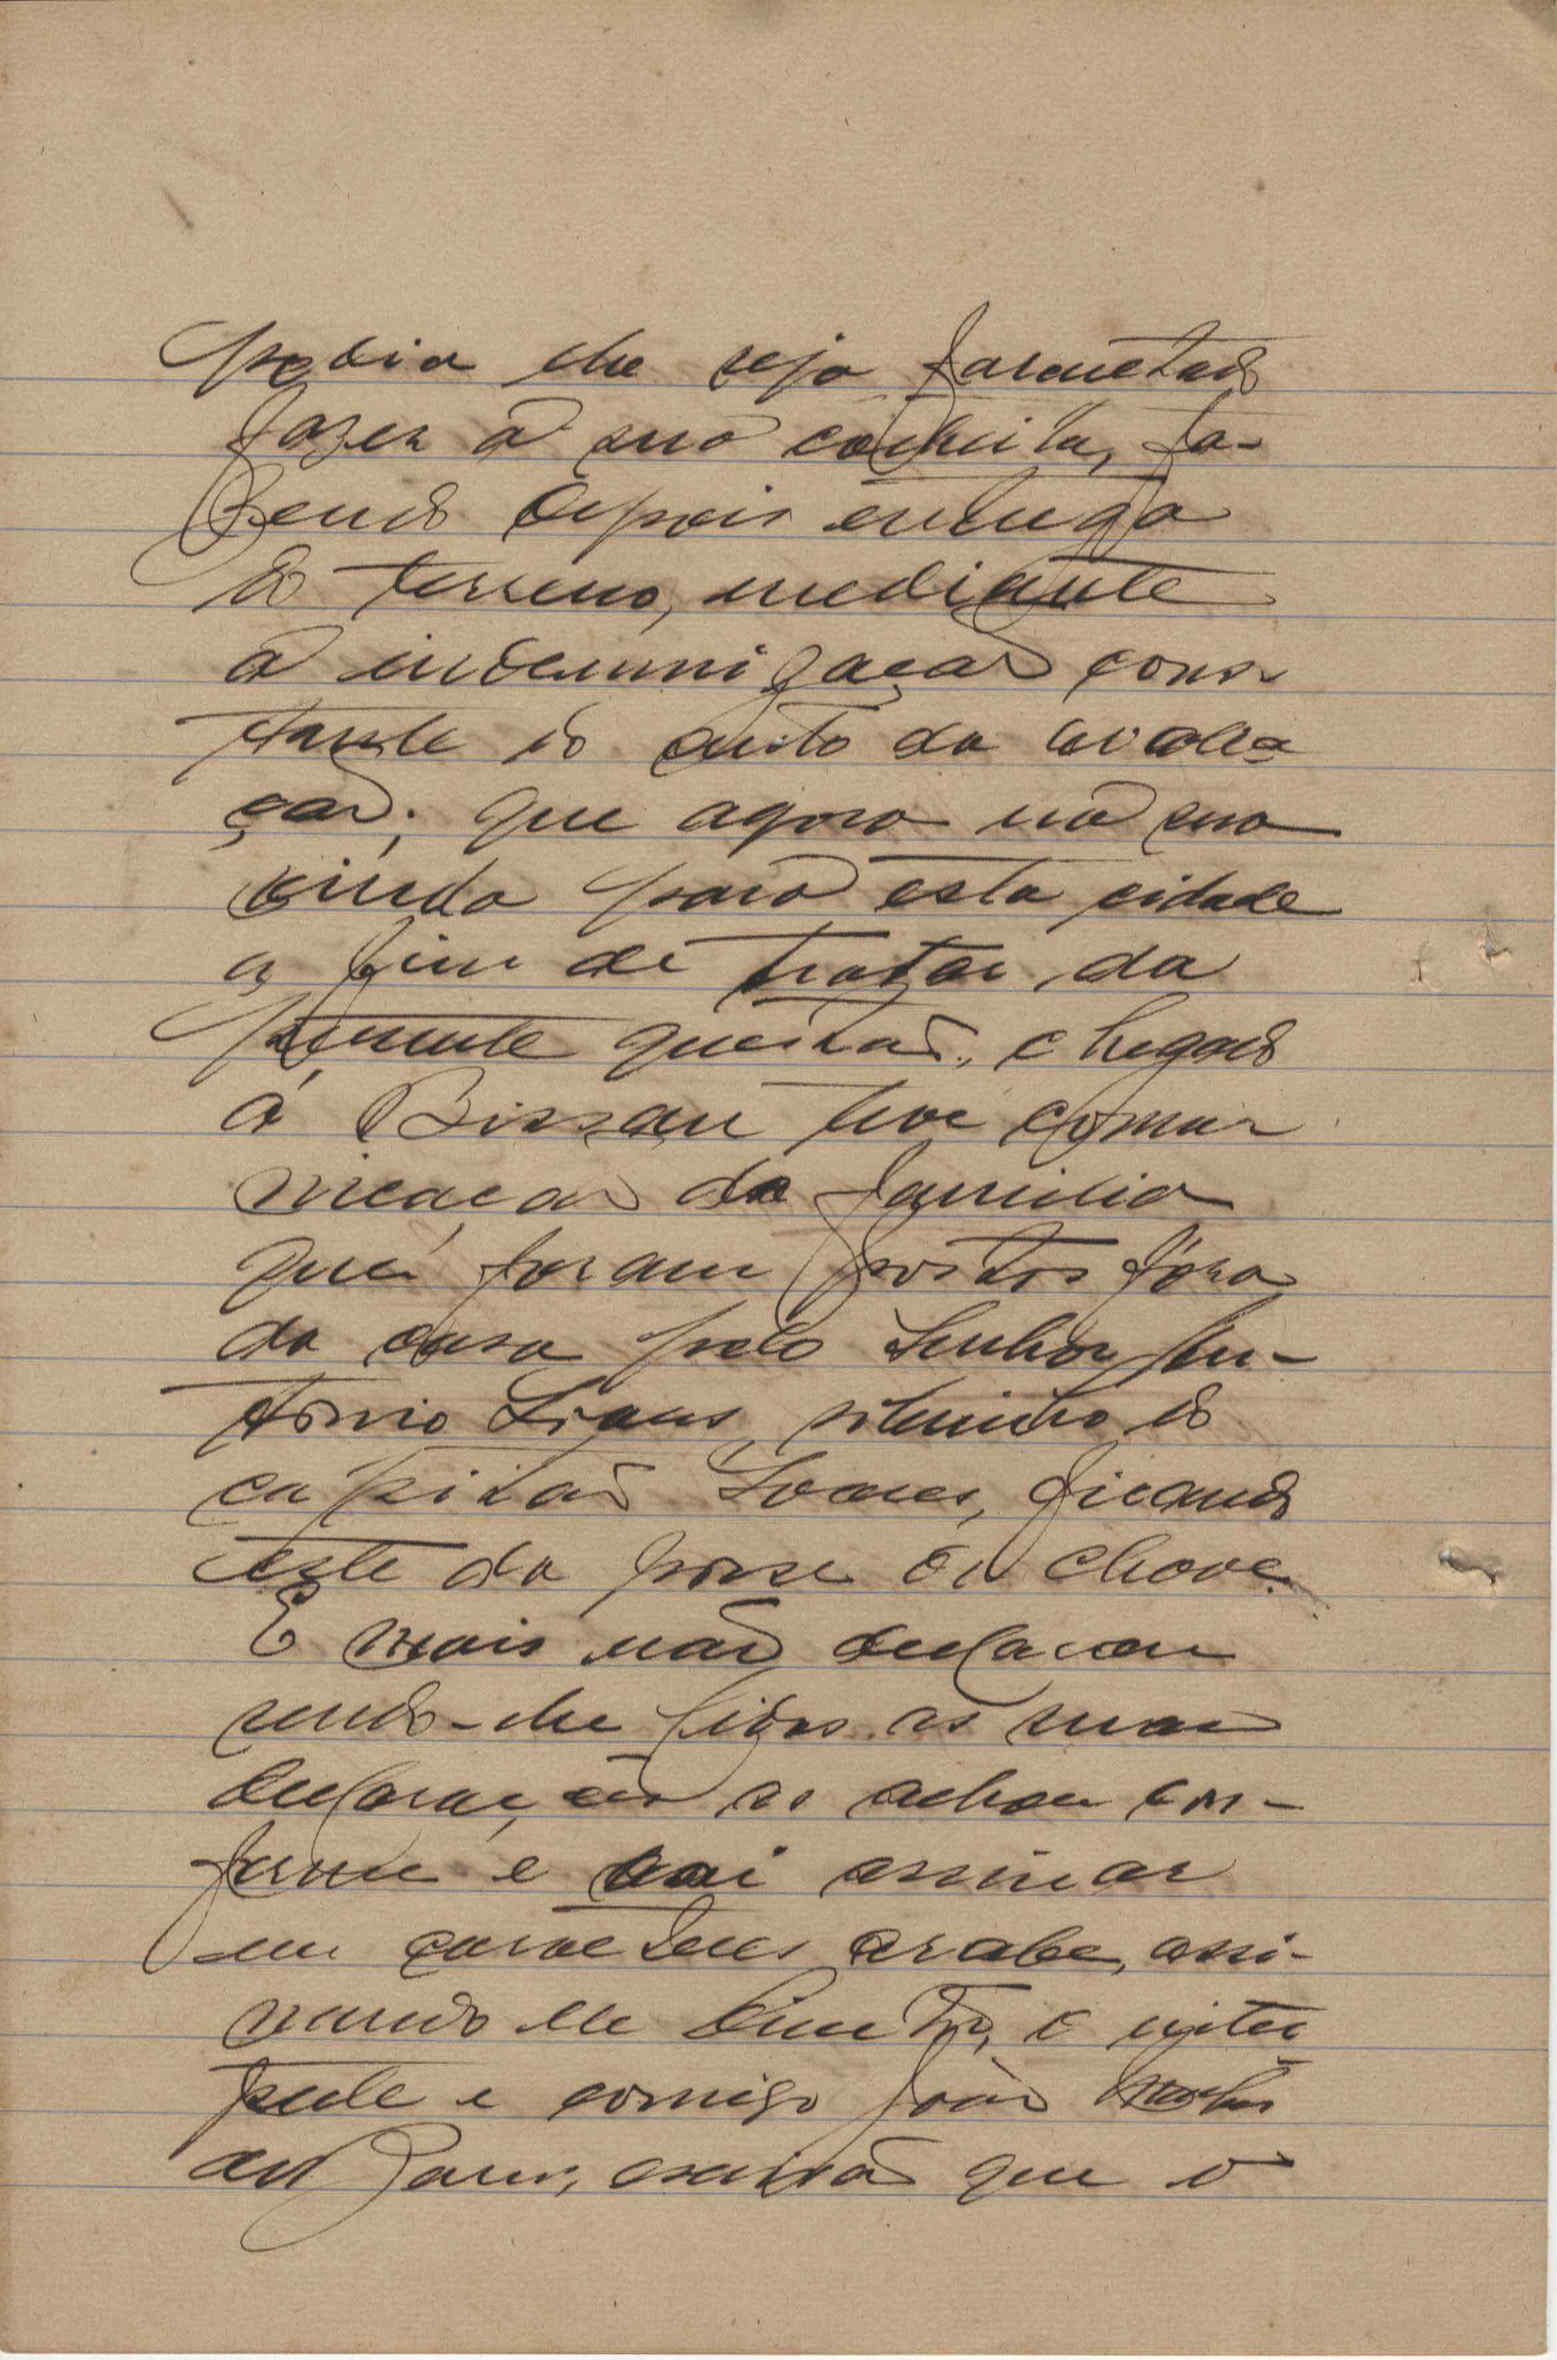 pedia lhe seja facultado
fazer a sua colheita, fa-
zendo depois entrega
do terreno, mediante
a indemnisação cons-
tante do auto da avalia
ção; que agora na sua
vinda para esta cidade
a fim de tratar da
presente questão, chegado
á Bissau teve comu-
nicação da familia
que foram postos fóra
da casa pelo Senhor An-
tonio Soares, sobrinho do
capitão Soares, ficando
este da posse da chave.
E mais não declarou
sendo-lhe lidas as suas
declarações as achou con-
forme e vai assinar
em caracteres arabe, assi-
nando ele Director, o inter
prete e comigo João
 escrivão que o